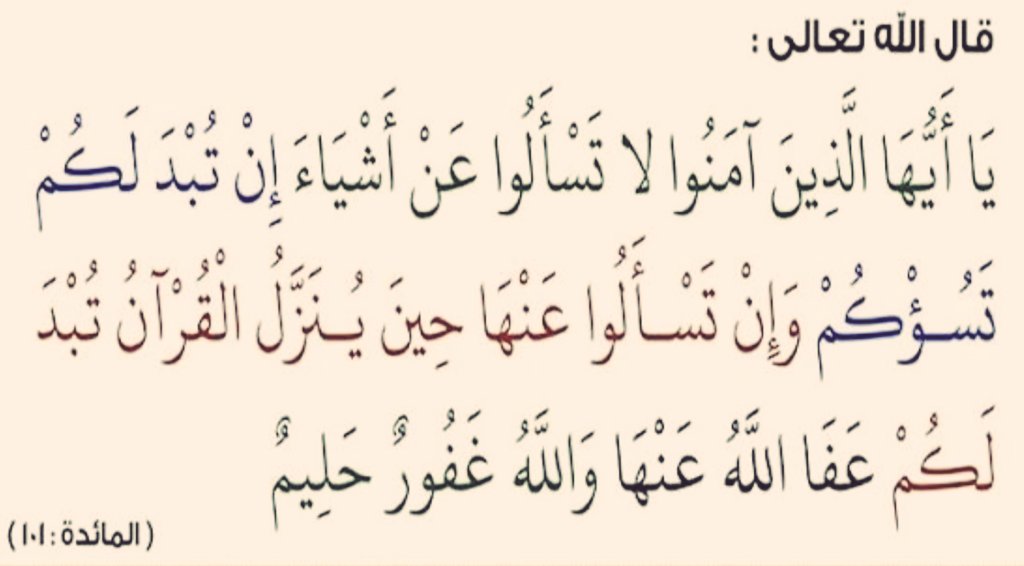 قال الله تعالى :
يَا أَيُّهَا الَّذِينَ آمَنُوا لا تَسْأَلُوا عَنْ أَشْيَاءَ إِنْ تُبْدَ لَكُمْ
تَسُـؤْكُمْ وَإِنْ تَسْـأَلُوا عَنْهَا حِينَ يُـنَزَّلُ الْقُرْآنُ تُبْدَ
لَكُمْ عَفَا اللَّهُ عَنْهَا وَاللَّهُ غَفُورٌ حَلِيمٌ
( المائدة : ١٠١ )